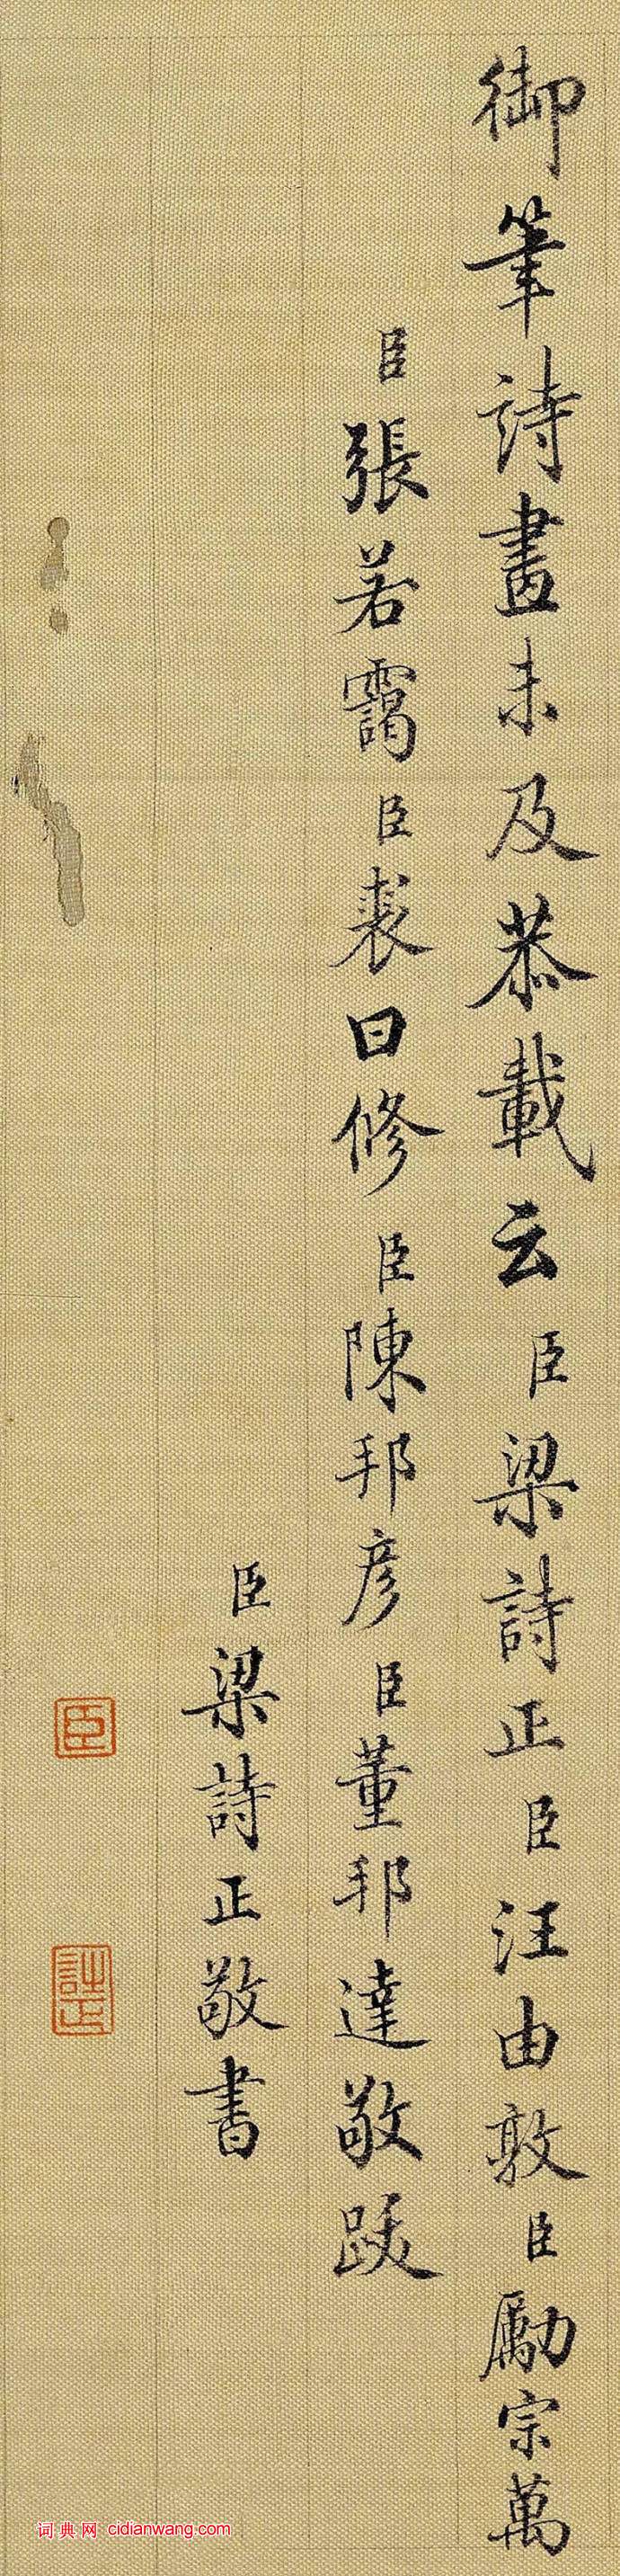 御筆詩畫未及恭載云臣梁詩正臣汪由敦臣勵宗萬
臣張若靄臣裘曰修臣陳邦彦臣董邦達敬跋
臣梁詩正敬書
臣
詩正
词典网 cidianwang.com